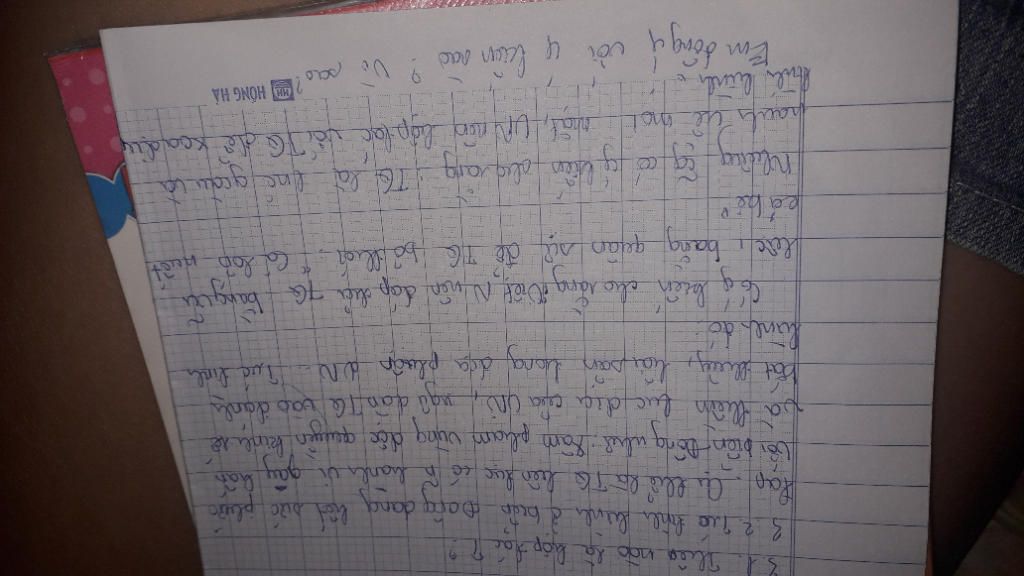 3.1. Thế nào là hợp tác ?
3.2. Vừa tình hình ở biển Đông đang hết sức phức
tạp. Cụ thể là TQ liên tục có n hành vi gây hấn
với biển Đông như: Xâm phạm vùng đặc quyền kinh tế
và thềm lục địa của VN, ngư dân TQ vào đánh
bắt thủy, hải sản trong địa phận VN. Trước tình
hình đó:
Có ý kiến cho rằng Việt N nên đáp trả TQ bằng vũ
lực, bằng quân sự để TQ bỏ thói "Cá lớn nuốt
cá bé".
Nhưng cũng có ý kiến cho rằng: TQ là nước
mạnh về mọi mặt, VN nên hợp tác với TQ để
Em đồng ý với ý kiến nào ? Vì sao?
HONG HA